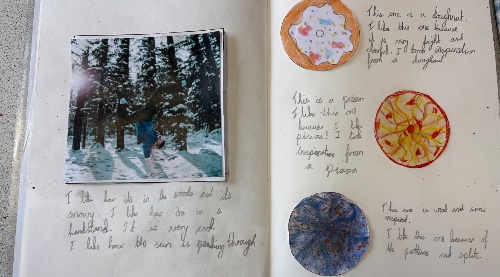 I like how its in the woods and its
snowy. I like how im in a
handstand. It is very cool
I like how the sun is peaking through.
This one is a doughnut.
I like this one because
it is very bright and
I took inspiration
from a doughnut
This is a pizza
I like this one
because I like
pizza! I took
inspiration from
a pizza
This one is and
inspired.
I like this one because of
the patterns and splats.